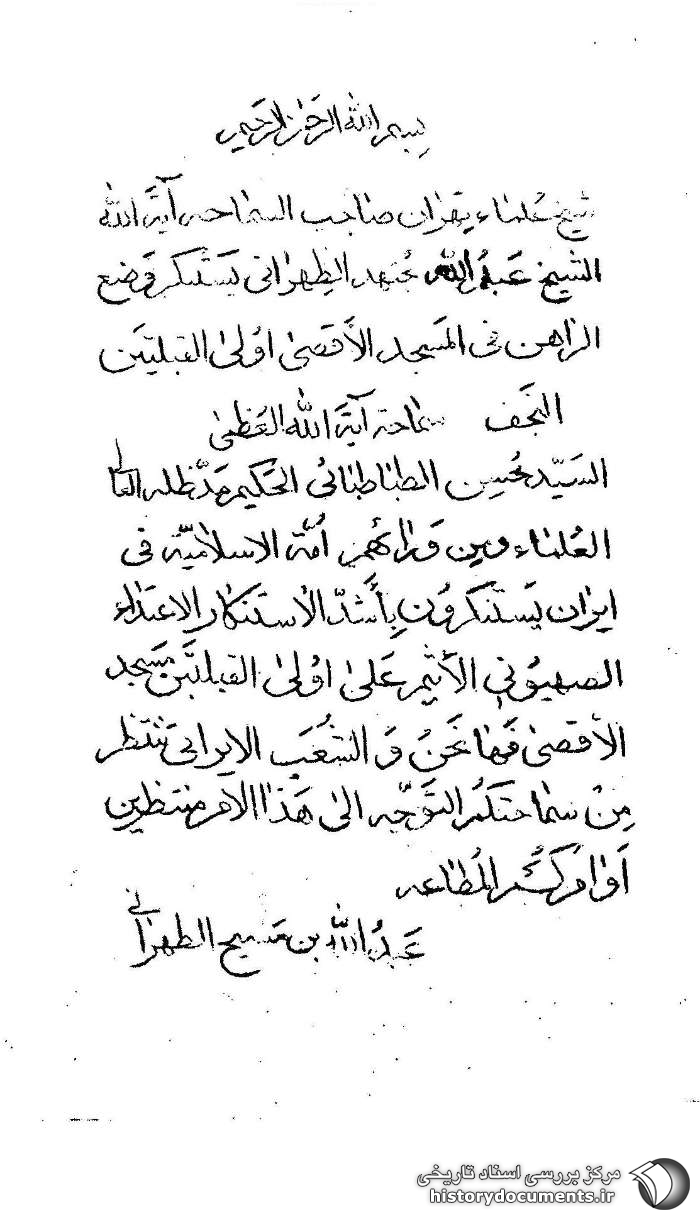 بسم الله الرحمن الرحیم
شیخ علماء یقران صاحب السماحه آیة الله
الشیخ عبد الله مجتهد الطهرانی یستنکر وضع
الراهن فی المسجد الأقصی اولی القبلتین
النجف سماحة آیة الله العُظمی
السَیّد محسن الطباطبائی الحکیم مدّظله العالی
العُلماء ومِن وَرائهم اُمّة الاسلامیّة فی
ایران یَستنکرُون بِأشدّ الأستنکار الاعتداء
الصهیُونی الأثیم عَلیٰ اوُلیٰ القبلتَین مسجد
الأقصیٰ فَها نَحنُ وَ الشَعب الایرانی نَنتظر
مِنْ سماحتکم التوَجّه الیٰ هَذا الامر منتظرین
اَوامرکُم المُطاعه
عَبدُالله بن مَسیح الطهرانی
مرکز بررسی اسناد تاریخی
historydocuments.ir